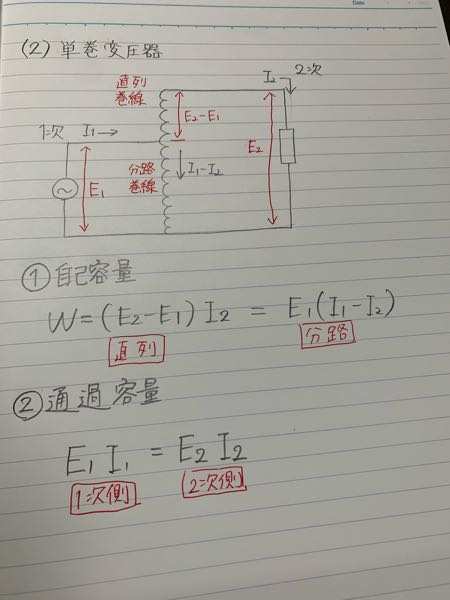 Date
(2) 単巻変圧器
直列
巻線
E₂-E₁
I₂
2次
1次 I₁→
E₁
分路
巻線
I₁-I₂
E₂
① 自己容量
W=(E₂-E₁)I₂ = E₁(I₁-I₂)
直列 分路
② 通過容量
E₁I₁ = E₂I₂
1次側 2次側